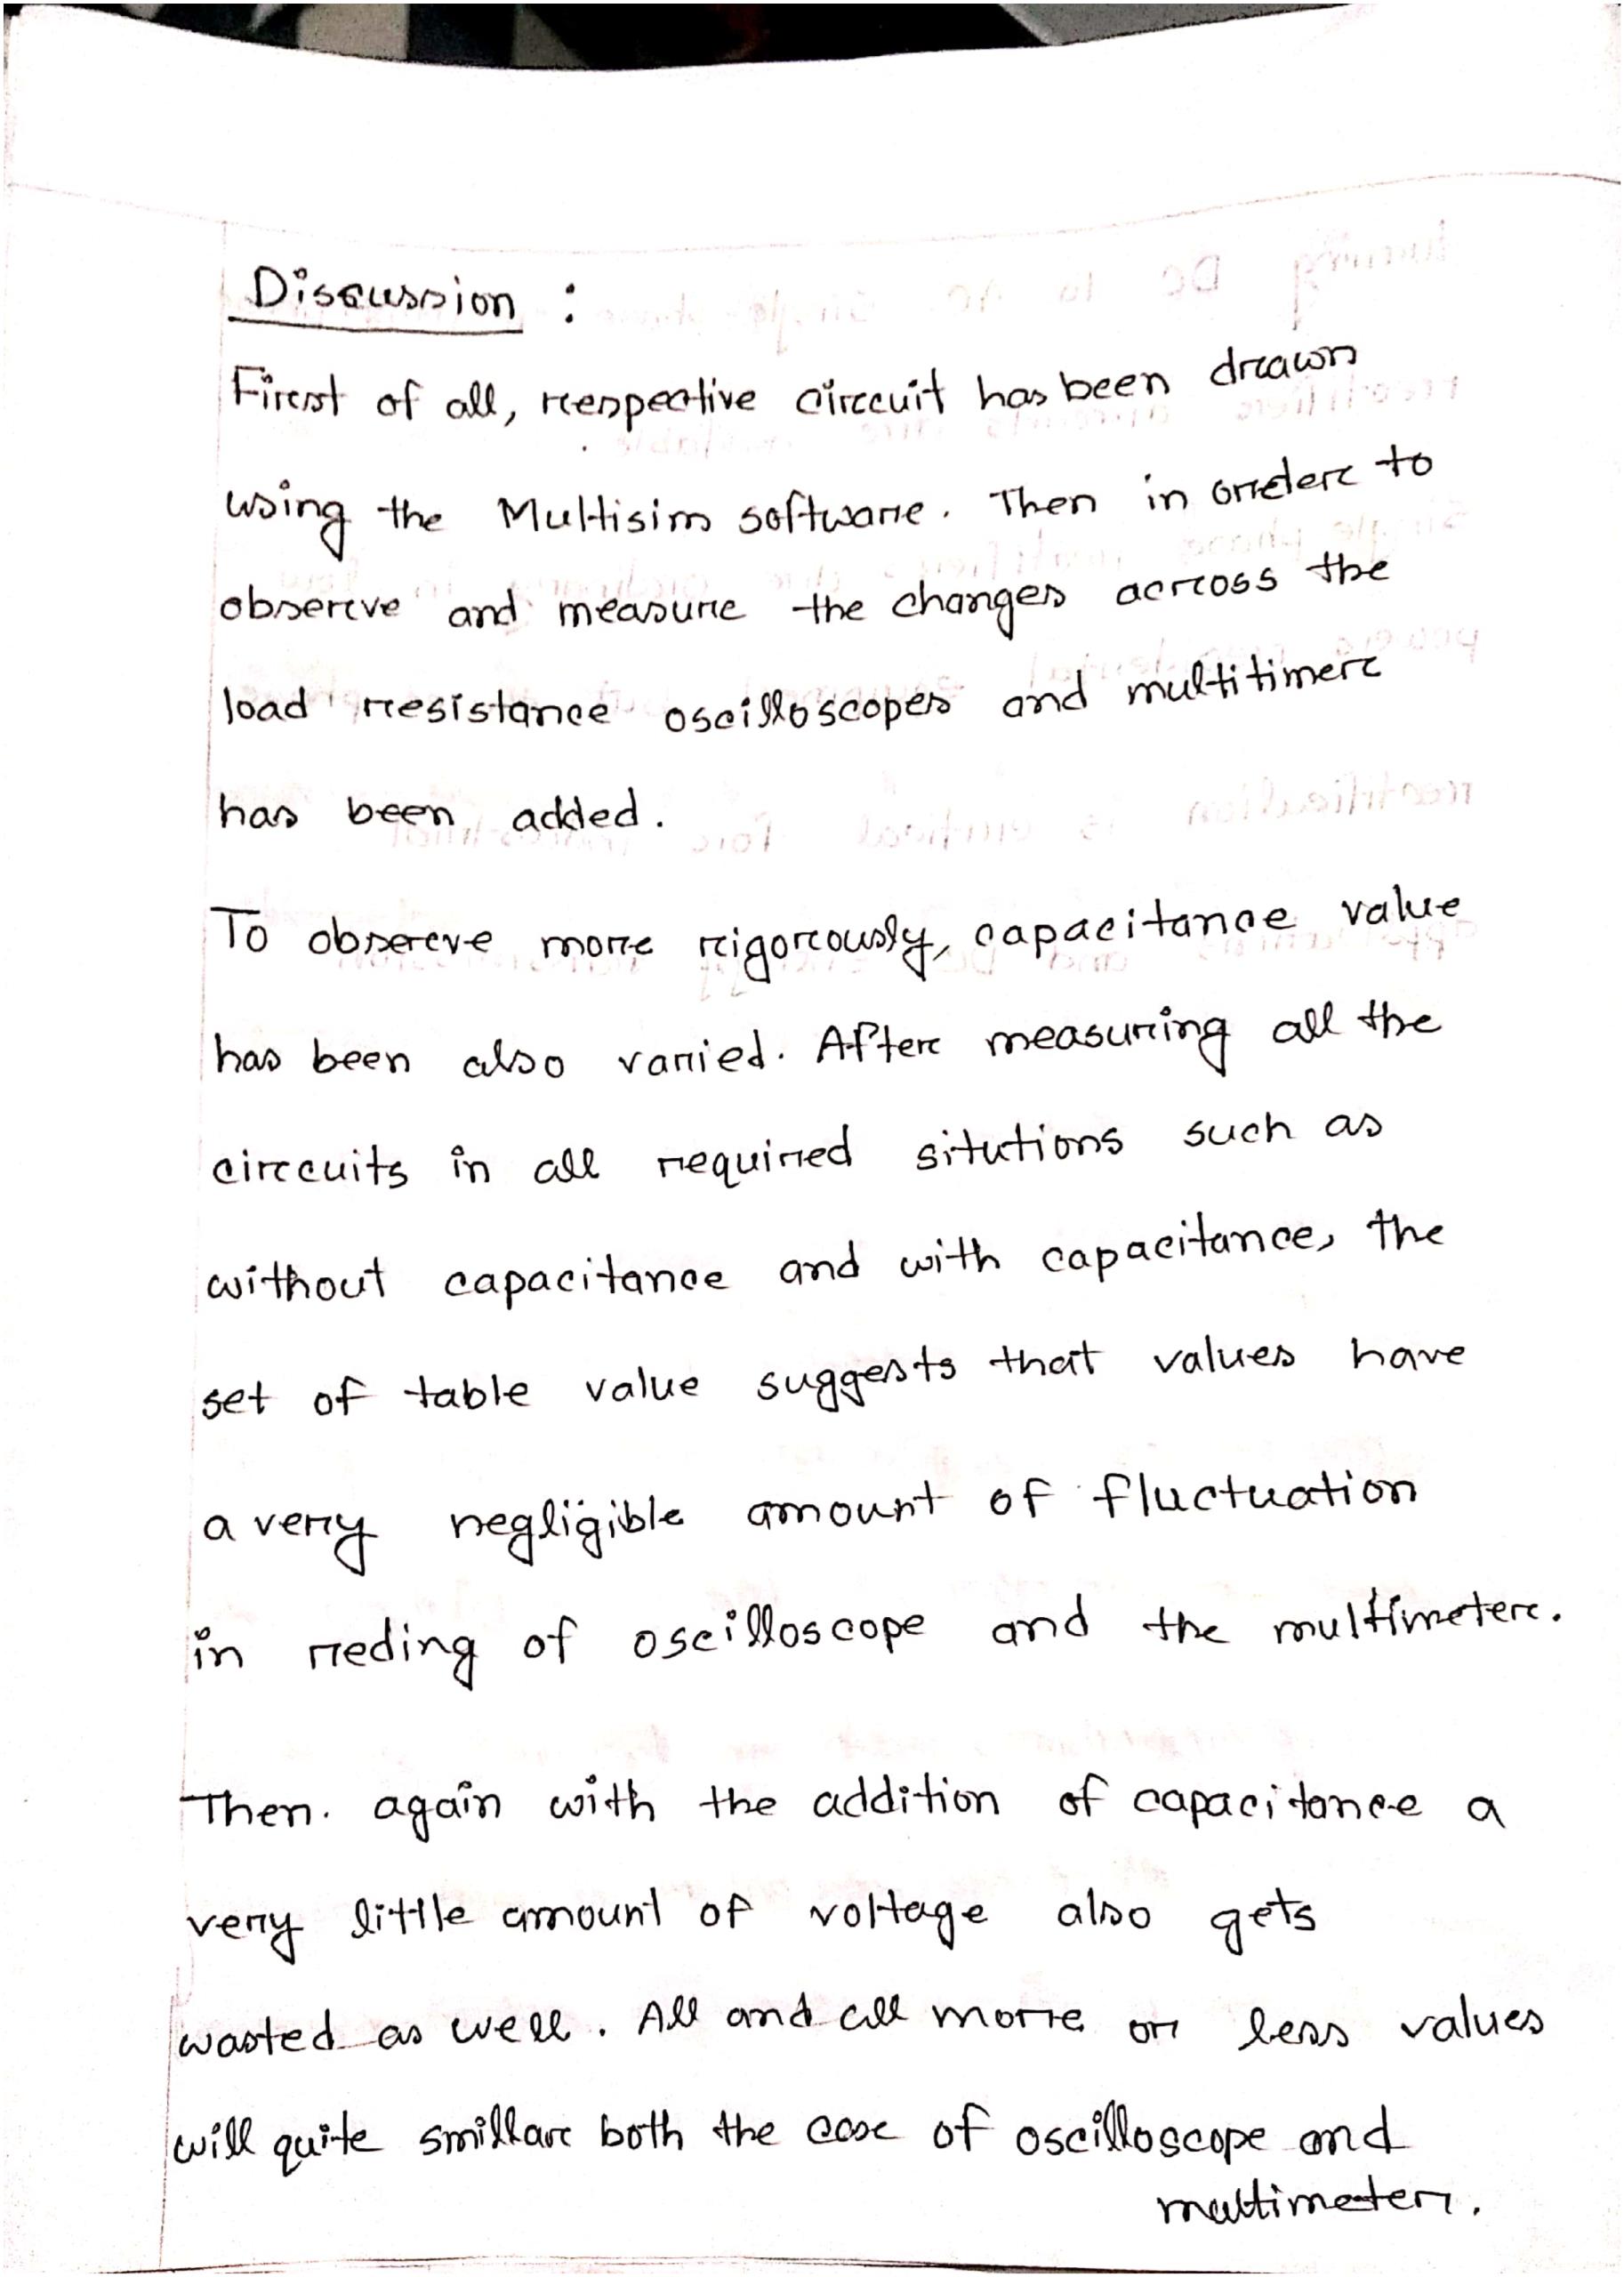 Discussion :
First of all, respective circuit has been drawn
using the Multisim software. Then in order to
observe and measure the changes across the
load resistance oscilloscopes and multitimer
has been added.
To observe more rigorously, capacitance value
has been also varied. After measuring all the
circuits in all required situtions such as
without capacitance and with capacitance, the
set of table value suggests that values have
a very negligible amount of fluctuation
in reding of oscilloscope and the multimeter.
Then. again with the addition of capacitance a
very little amount of voltage also gets
wasted as well. All and all more or less values
will quite smillar both the case of oscilloscope and
multimeter.